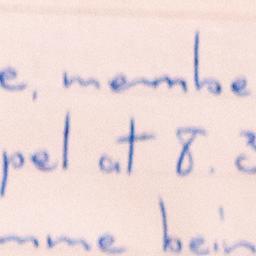 e, membe
pel at 8.3
mme bein